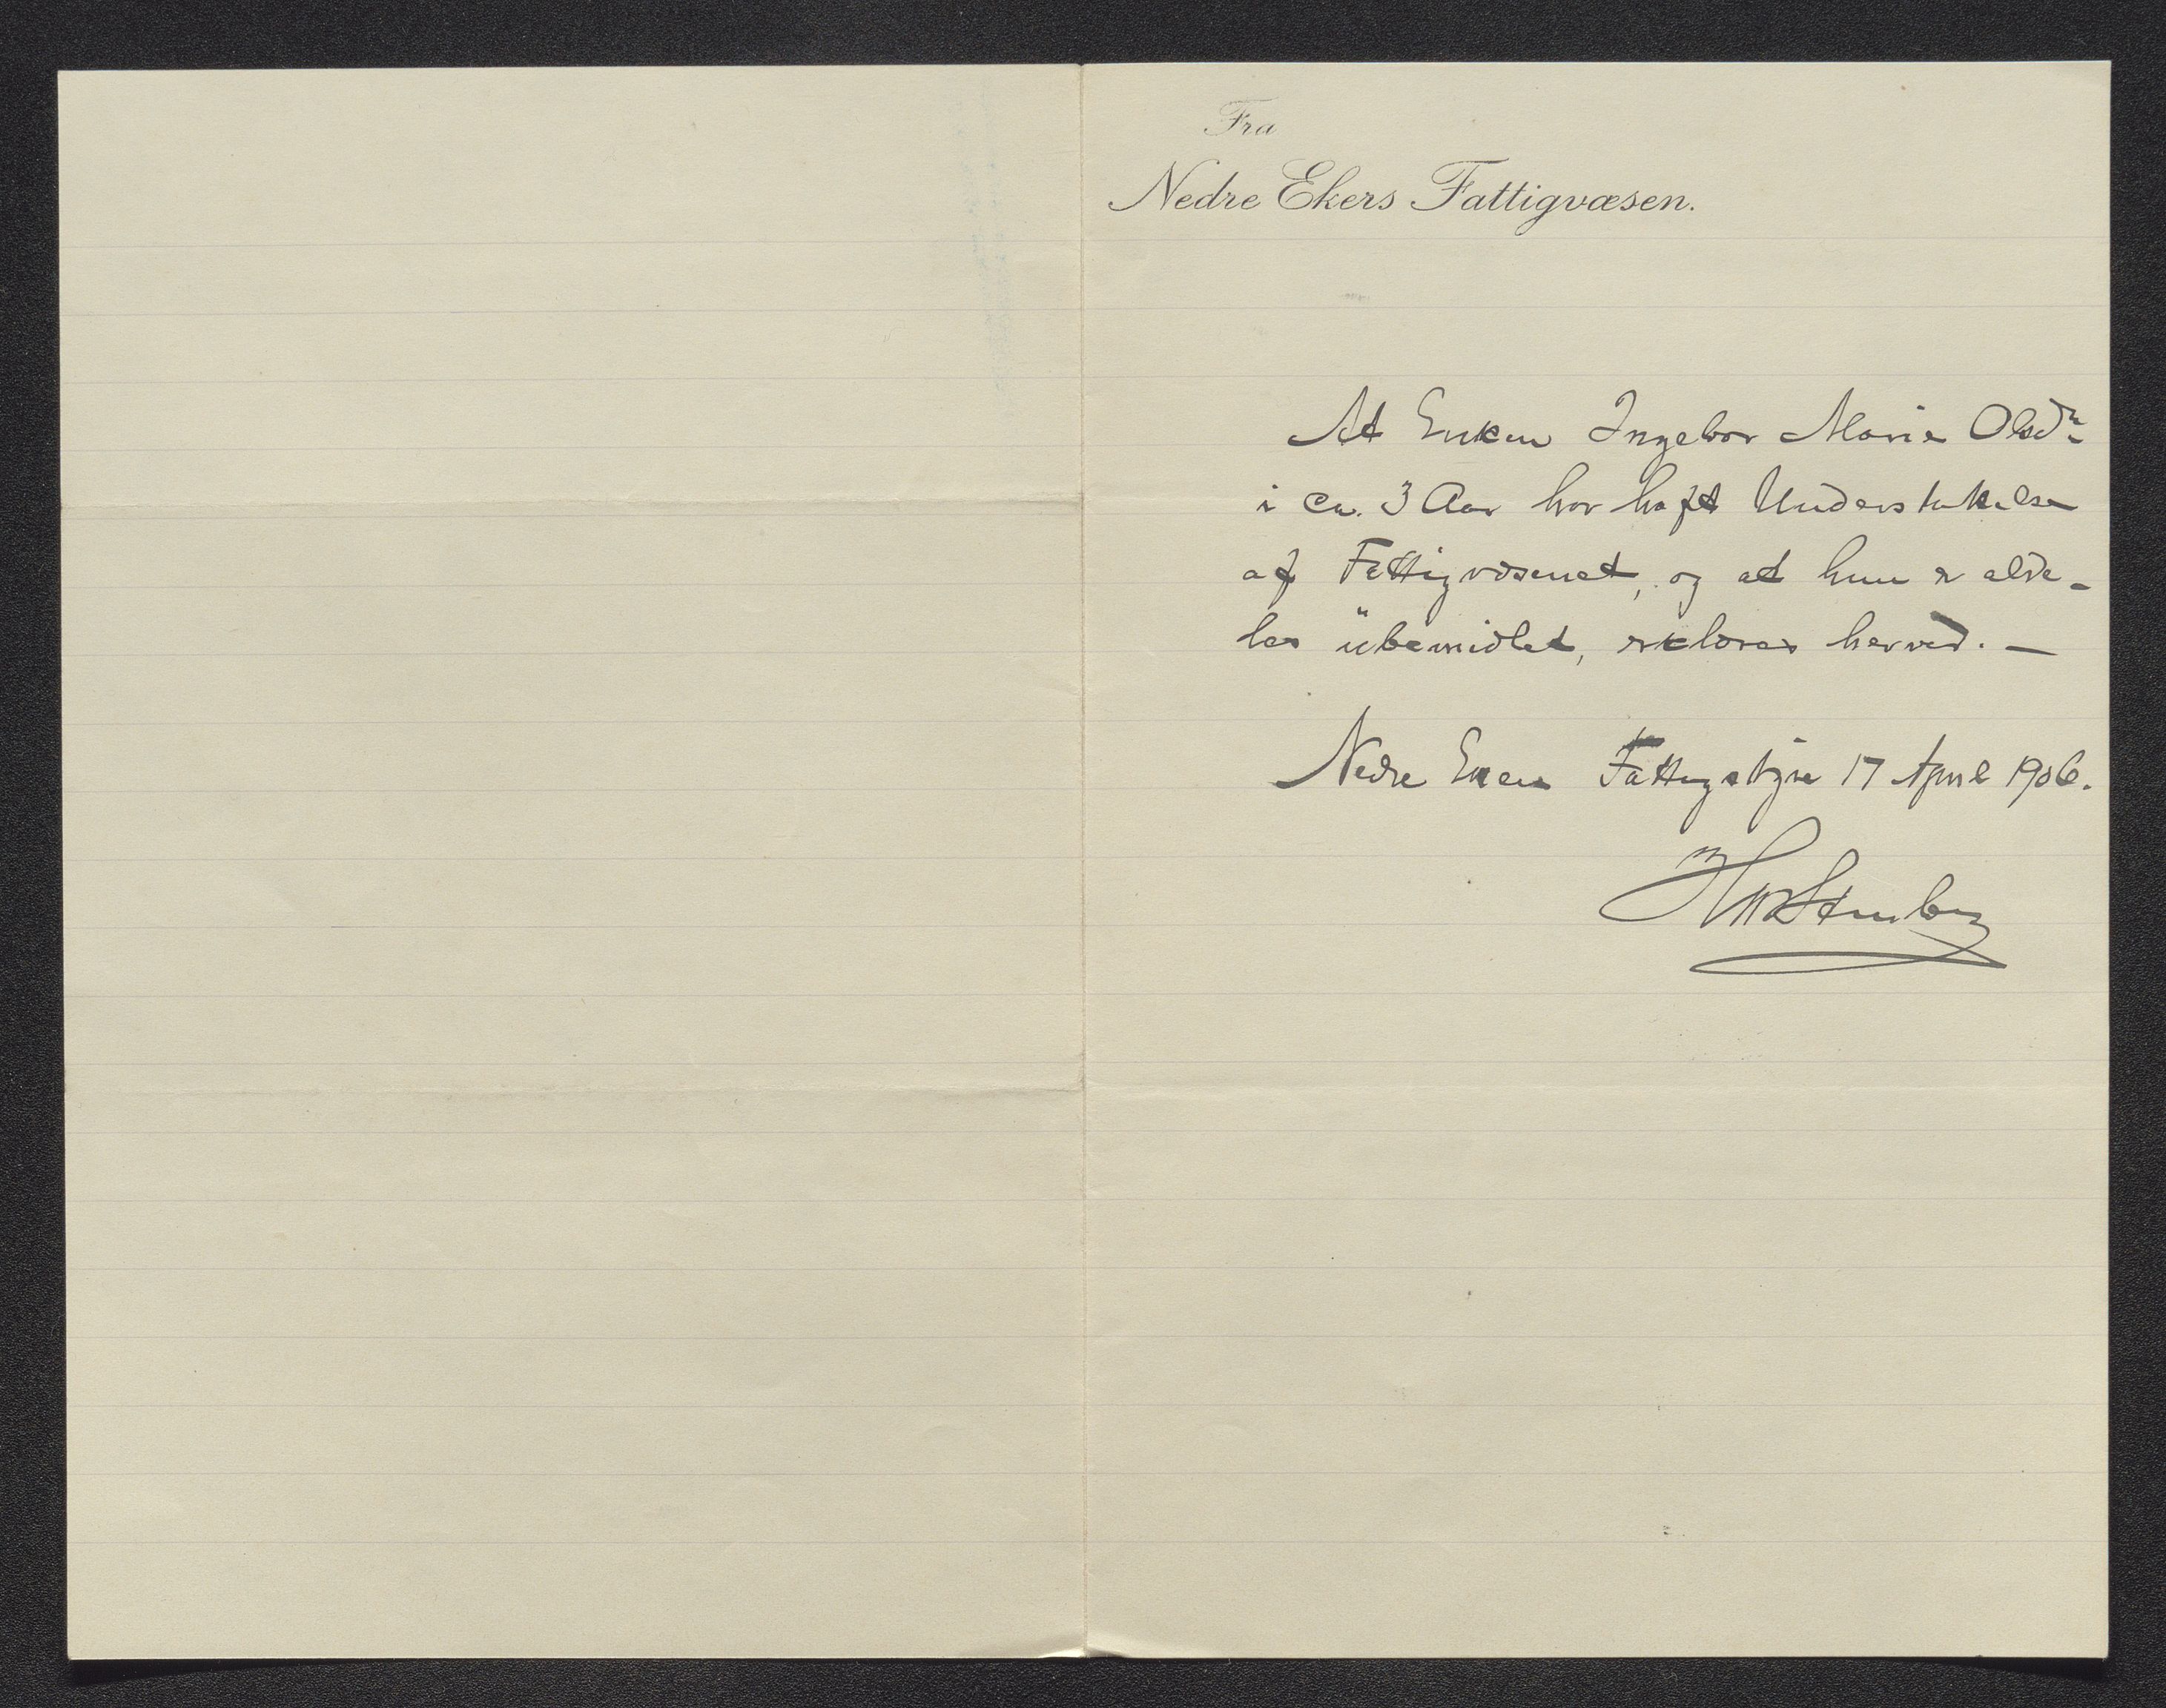 Fra
Nedre Ekers Fattigvæsen.
At Enken Ingebor Marie Olsdr.
i ca. 3 Aar har haft Understøttelse
af Fattigvæsenet, og at hun er alde-
les ubemidlet, erklæres herved. —
Nedre Ekers Fattigstyre 17 April 1906.